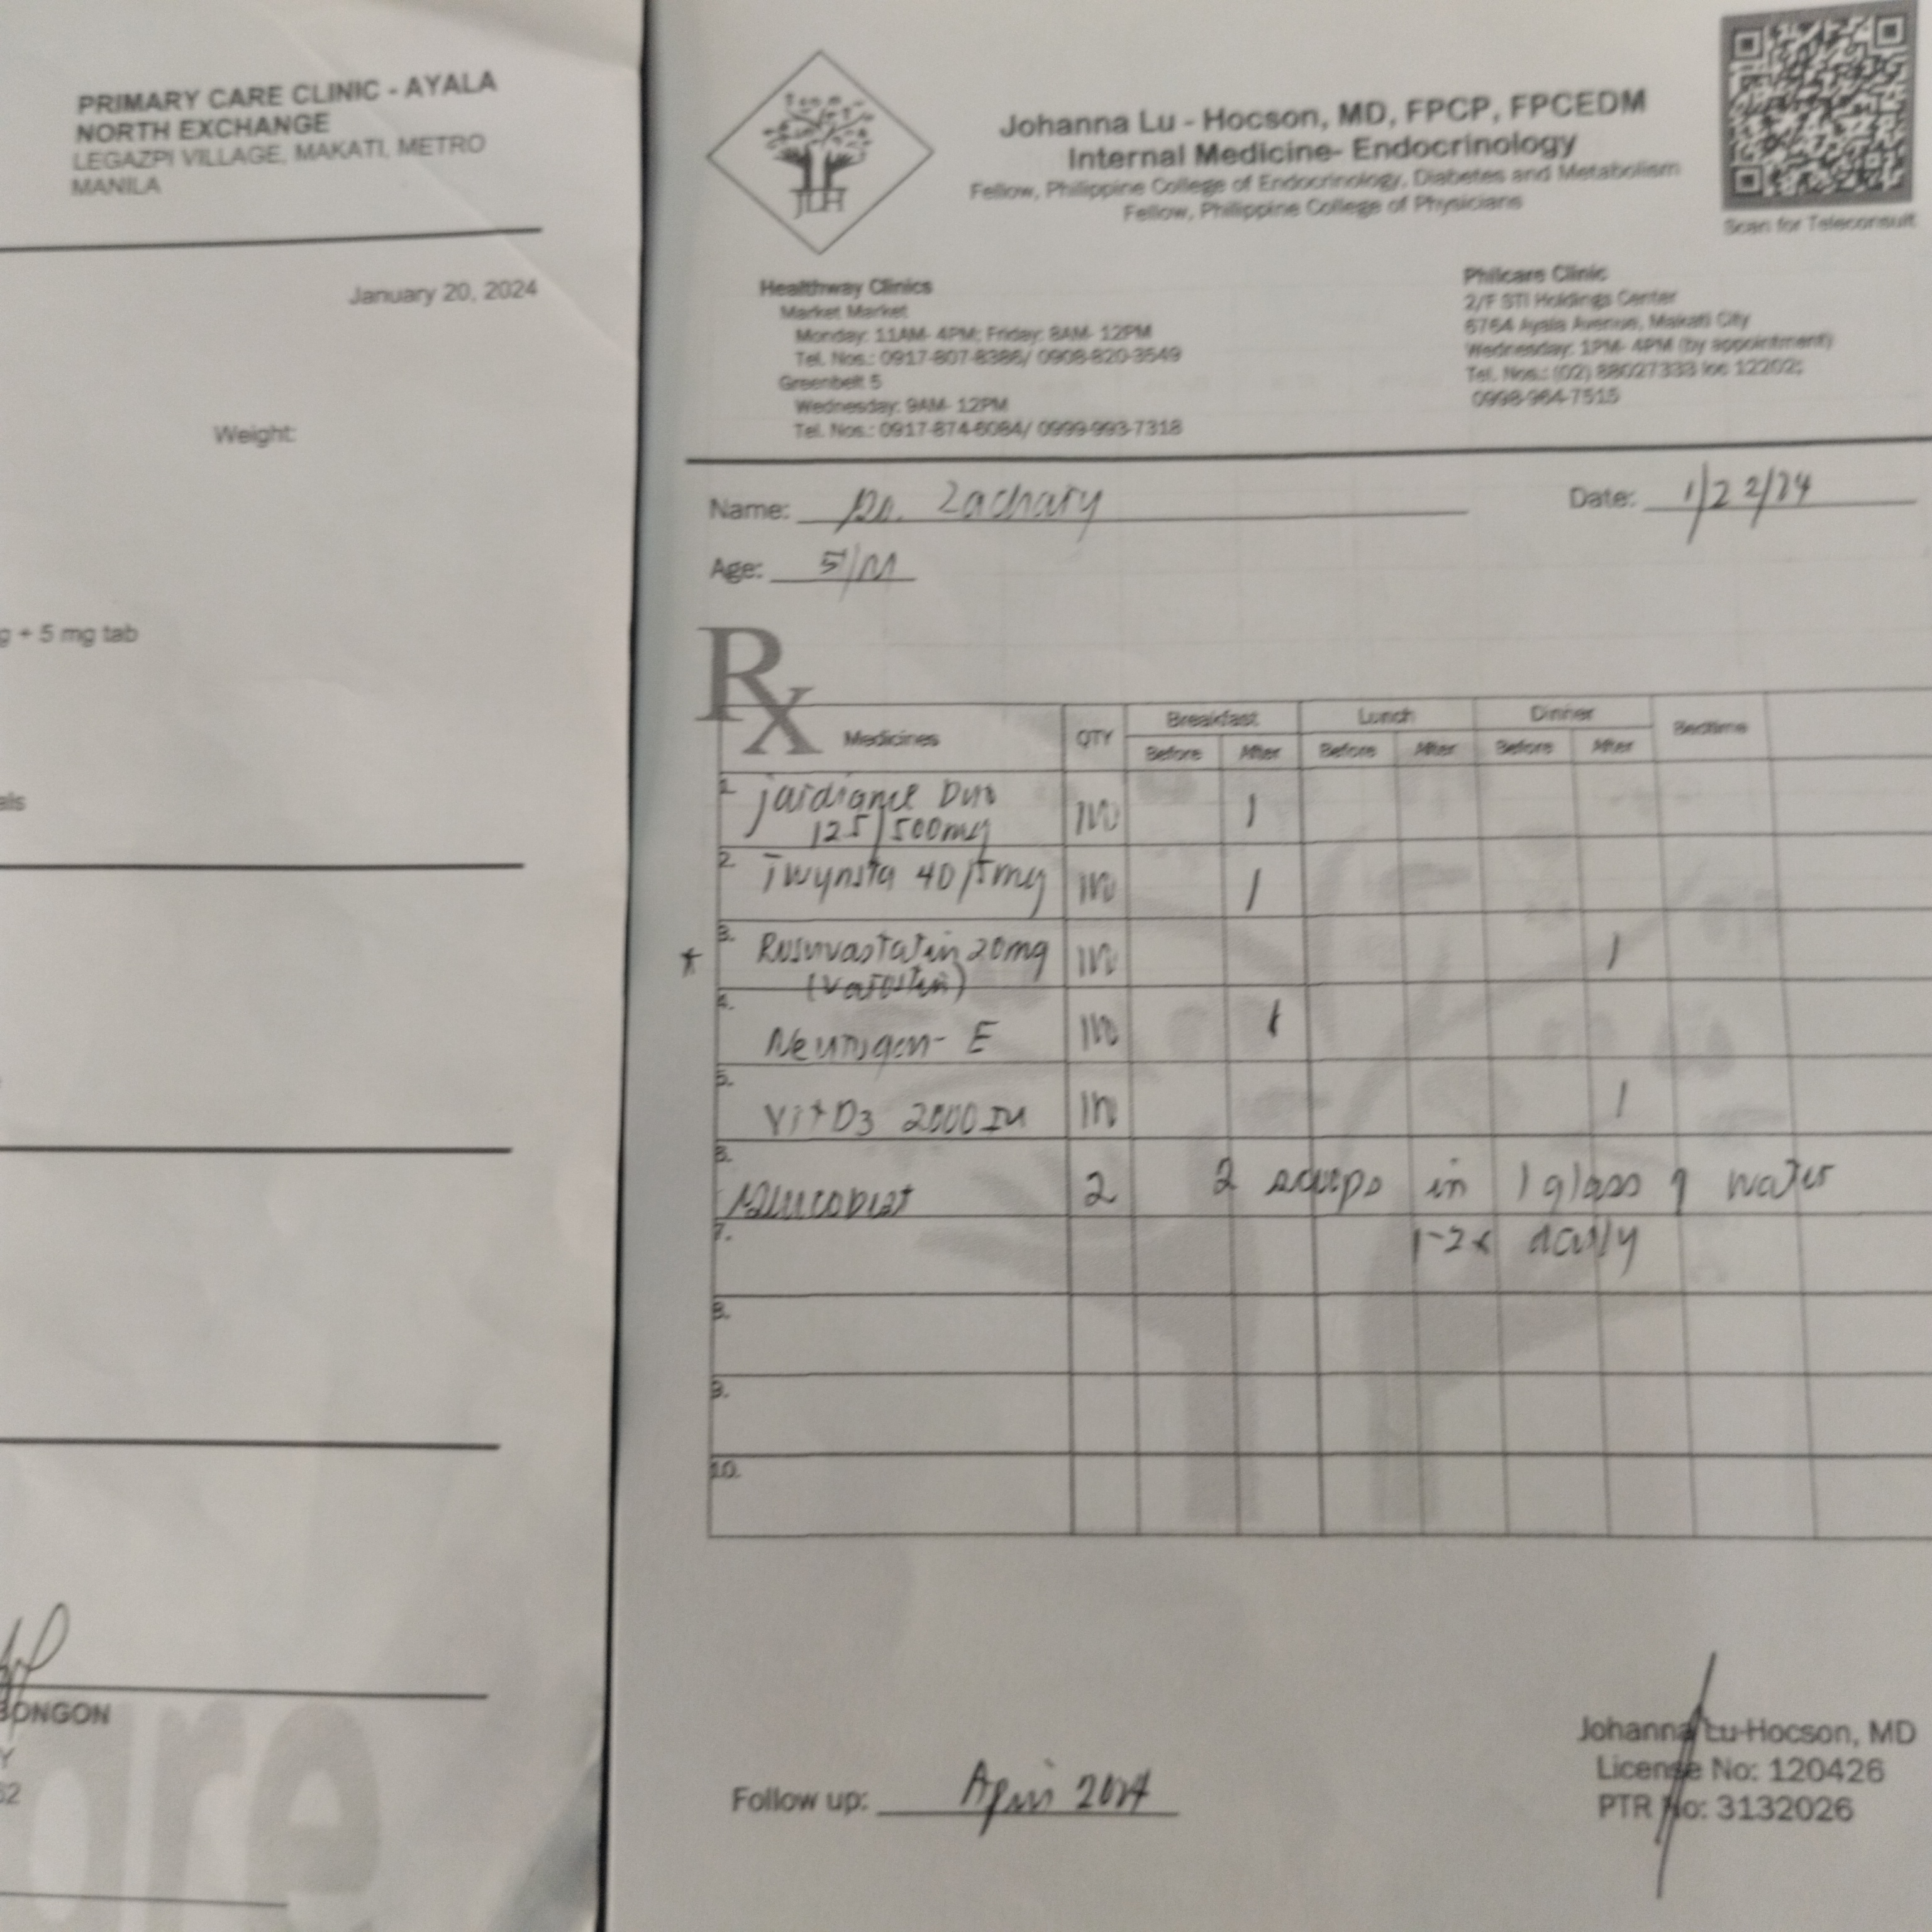 PRIMARY CARE CLINIC - AYALA
NORTH EXCHANGE
LEGAZPI VILLAGE, MAKATI, METRO
MANILA
January 20, 2024
Weight:
g + 5 mg tab
als
BONGON
Y
62
are
JLH
Johanna Lu - Hocson, MD, FPCP, FPCEDM
Internal Medicine- Endocrinology
Fellow, Philippine College of Endocrinology, Diabetes and Metabolism
Fellow, Philippine College of Physicians
Scan for Teleconsult
Healthway Clinics
Market Market
Monday: 11AM- 4PM; Friday: 8AM- 12PM
Tel. Nos.: 0917-807-8386/ 0908-820-3549
Greenbelt 5
Wednesday: 9AM- 12PM
Tel. Nos.: 0917-874-6084/ 0999-993-7318
Philcare Clinic
2/F STI Holdings Center
6764 Ayala Avenue, Makati City
Wednesday: 1PM- 4PM (by appointment)
Tel. Nos.: (02) 88027333 loc 12202;
0998-964-7515
Name: Zachary Date: 1/22/24
Age: 5/M
Rx
Medicines QTY Breakfast Lunch Dinner Bedtime
Before After Before After Before After
1. Jardiance Duo 1
12.5/500mg
2. Twynsta 40/5mg 1
* 3. Rosuvastatin 20mg 1
4. Neurogen-E 1
5. Vit D3 2000 IU 1
6. Glucobest 2 2 scoops in 1 glass of water
7. 1-2x daily
8.
9.
10.
Follow up: April 2024
Johanna Lu-Hocson, MD
License No: 120426
PTR No: 3132026